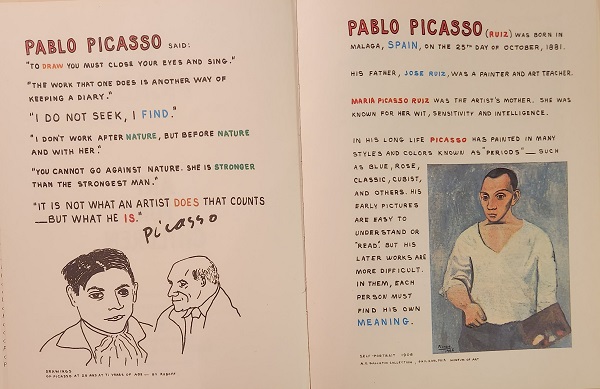 PABLO PICASSO SAID:
"TO DRAW YOU MUST CLOSE YOUR EYES AND SING."
"THE WORK THAT ONE DOES IS ANOTHER WAY OF
KEEPING A DIARY."
"I DO NOT SEEK, I FIND."
"I DON'T WORK AFTER NATURE, BUT BEFORE NATURE
AND WITH HER."
"YOU CANNOT GO AGAINST NATURE. SHE IS STRONGER
THAN THE STRONGEST MAN."
"IT IS NOT WHAT AN ARTIST DOES THAT COUNTS
—BUT WHAT HE IS."
Picasso
DRAWINGS
OF PICASSO AT 25 AND AT 71 YEARS OF AGE — BY
PABLO PICASSO (RUIZ) WAS BORN IN
MALAGA, SPAIN, ON THE 25TH DAY OF OCTOBER, 1881.
HIS FATHER, JOSE RUIZ, WAS A PAINTER AND ART TEACHER.
MARIA PICASSO RUIZ WAS THE ARTIST'S MOTHER. SHE WAS
KNOWN FOR HER WIT, SENSITIVITY AND INTELLIGENCE.
IN HIS LONG LIFE PICASSO HAS PAINTED IN MANY
STYLES AND COLORS KNOWN AS "PERIODS" — SUCH
AS BLUE, ROSE,
CLASSIC, CUBIST,
AND OTHERS. HIS
EARLY PICTURES
ARE EASY TO
UNDERSTAND OR
"READ". BUT HIS
LATER WORKS ARE
MORE DIFFICULT.
IN THEM, EACH
PERSON MUST
FIND HIS OWN
MEANING.
SELF-PORTRAIT 1906
A. E. GALLATIN COLLECTION, PHILADELPHIA MUSEUM OF ART